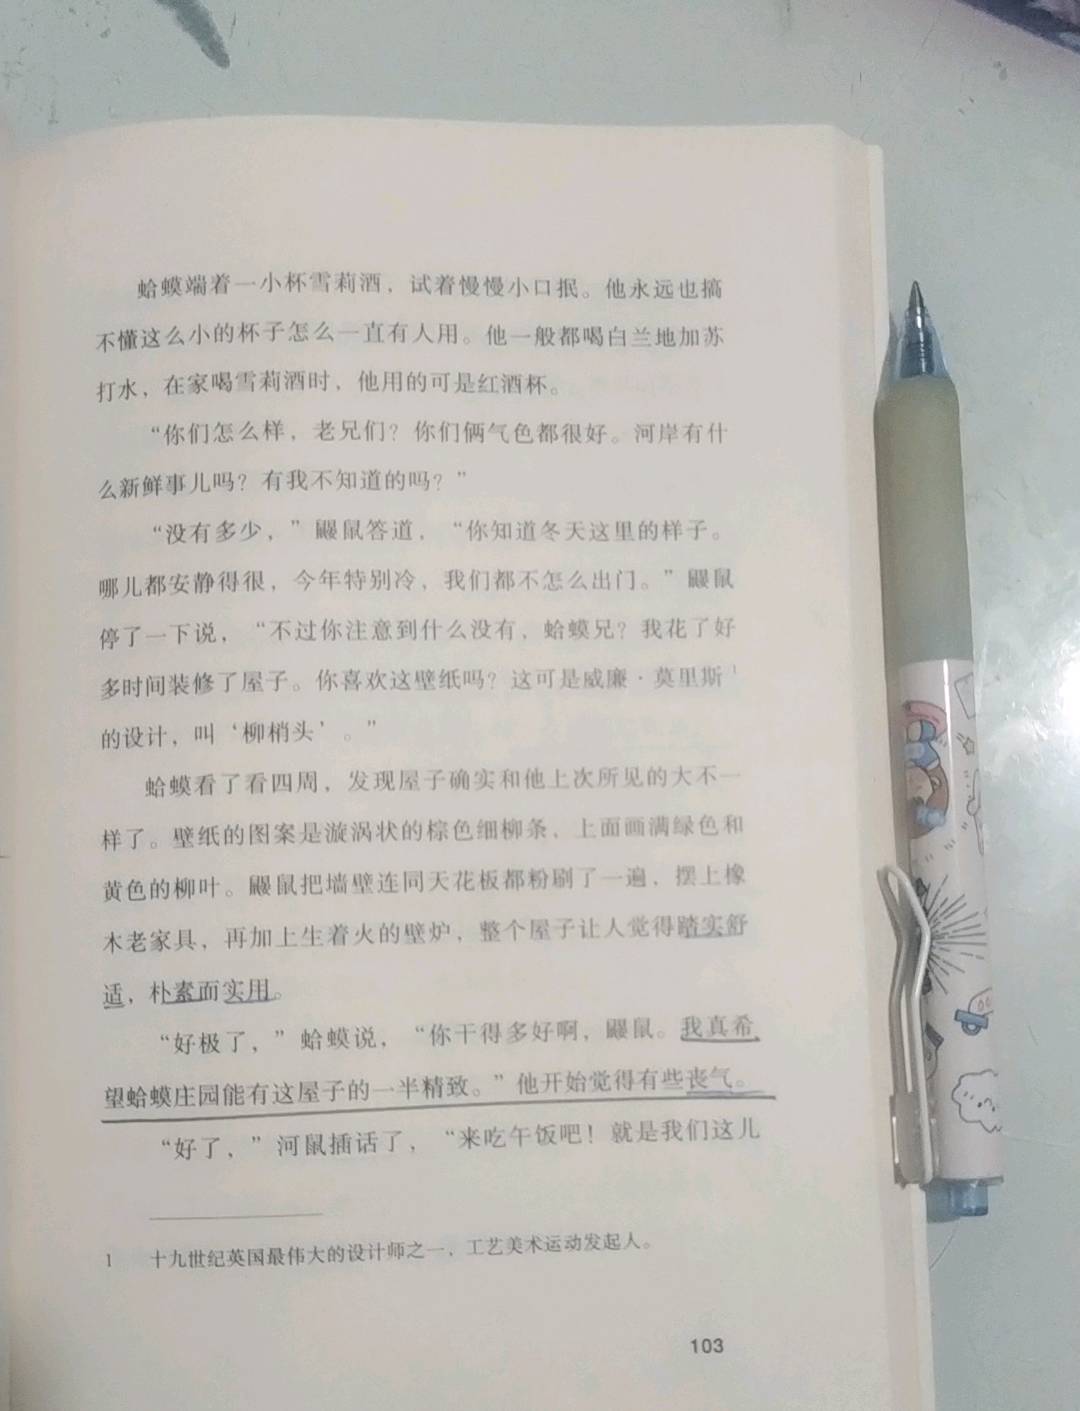 蛤蟆端着一小杯雪莉酒，试着慢慢小口抿。他永远也搞
不懂这么小的杯子怎么一直有人用。他一般都喝白兰地加苏
打水，在家喝雪莉酒时，他用的可是红酒杯。
“你们怎么样，老兄们？你们俩气色都很好。河岸有什
么新鲜事儿吗？有我不知道的吗？”
“没有多少，”鼹鼠答道，“你知道冬天这里的样子。
哪儿都安静得很，今年特别冷，我们都不怎么出门。”鼹鼠
停了一下说，“不过你注意到什么没有，蛤蟆兄？我花了好
多时间装修了屋子。你喜欢这壁纸吗？这可是威廉·莫里斯1
的设计，叫‘柳梢头’。”
蛤蟆看了看四周，发现屋子确实和他上次所见的大不一
样了。壁纸的图案是漩涡状的棕色细柳条，上面画满绿色和
黄色的柳叶。鼹鼠把墙壁连同天花板都粉刷了一遍，摆上橡
木老家具，再加上生着火的壁炉，整个屋子让人觉得踏实舒
适，朴素而实用。
“好极了，”蛤蟆说，“你干得多好啊，鼹鼠。我真希
望蛤蟆庄园能有这屋子的一半精致。”他开始觉得有些丧气。
“好了，”河鼠插话了，“来吃午饭吧！就是我们这儿
1 十九世纪英国最伟大的设计师之一，工艺美术运动发起人。
103